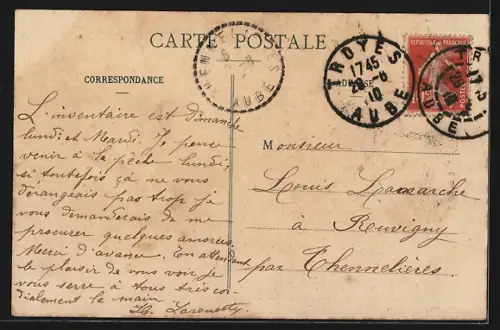 CARTE POSTALE
CORRESPONDANCE
ADRESSE
TROYES
1745
28-6
10
AUBE
REPUBLIQUE FRANÇAISE
POSTES
AUBE
AUBE
L'inventaire est Dimanche
lundi et Mardi. Je pense
venir à la pêche lundi,
si toutefois çà ne vous
dérangeais pas trop je
vous demanderais de me
procurer quelques amorces.
Merci d'avance. En attendant
le plaisir de vous voir je
vous serre à tous très cor-
dialement la main
Monsieur
Louis Lamarche
à Rouvigny
par Thennelières.